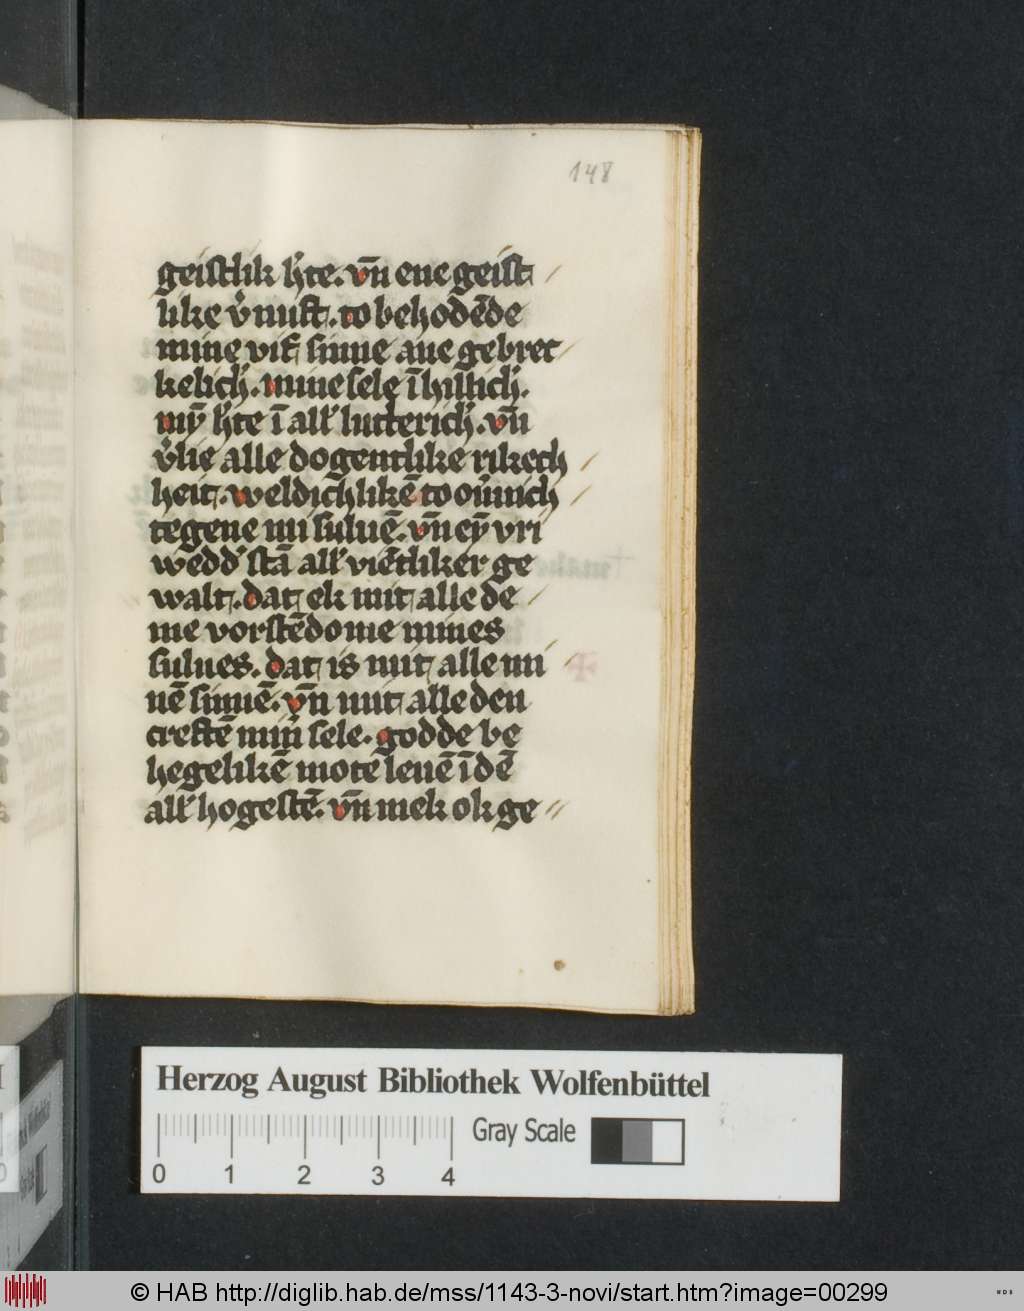 148
geistlik h̾te. vn̄ ene geist
like v̾nuft. to behodēde
mine vif sinne ane gebrec
kelich̾. mine sele ī hillich̾.
mȳ h̾te ī all̾ lutterich̾. vn̄
v̾lie alle dogentlike rikech
heit. weldichlikē to
tegene mi suluē. vn̄ eȳ vri
wedd̾ stā all̾ viētliker ge
walt. dat ek mit alle de
me vorstēdome mines
sulues. dat is mit alle mi
nē sinnē. vn̄ mit alle den
creftē min̾ sele. godde be
hegelikē mote leuē ī dē
all̾ hogestē. vn̄ mek ok ge
Herzog August Bibliothek Wolfenbüttel
Gray Scale
0 1 2 3 4
© HAB http://diglib.hab.de/mss/1143-3-novi/start.htm?image=00299